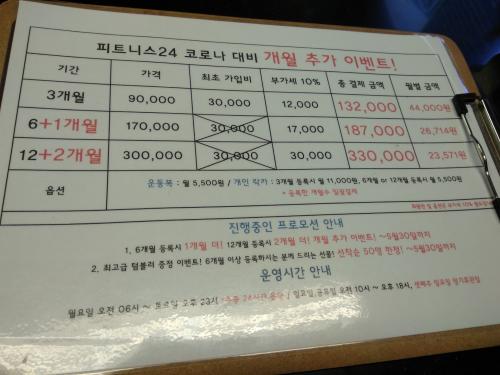 피트니스24 코로나 대비 개월 추가 이벤트!
기간 가격 최초 가입비 부가세 10% 총 결제 금액 월별 금액
3개월 90,000 30,000 12,000 132,000 44,000원
6+1개월 170,000 30,000 17,000 187,000 26,714원
12+2개월 300,000 30,000 30,000 330,000 23,571원
옵션 운동복 : 월 5,500원 / 개인 락카 : 3개월 등록시 월 11,000원, 6개월 or 12개월 등록시 월 5,500원
* 등록한 개월수 일괄결제
진행중인 프로모션 안내
1. 6개월 등록시 1개월 더! 12개월 등록시 2개월 더! 개월 추가 이벤트! ~5월30일까지
2. 최고급 텀블러 증정 이벤트! 6개월 이상 등록하시는 분께 드리는 선물! 선착순 50명 한정! ~5월30일까지
운영시간 안내
월요일 오전 06시 ~ 토요일 오후 23시 24시간 / 일요일, 공휴일 오전 10시 ~ 오후 18시, 일요일 정기휴관일